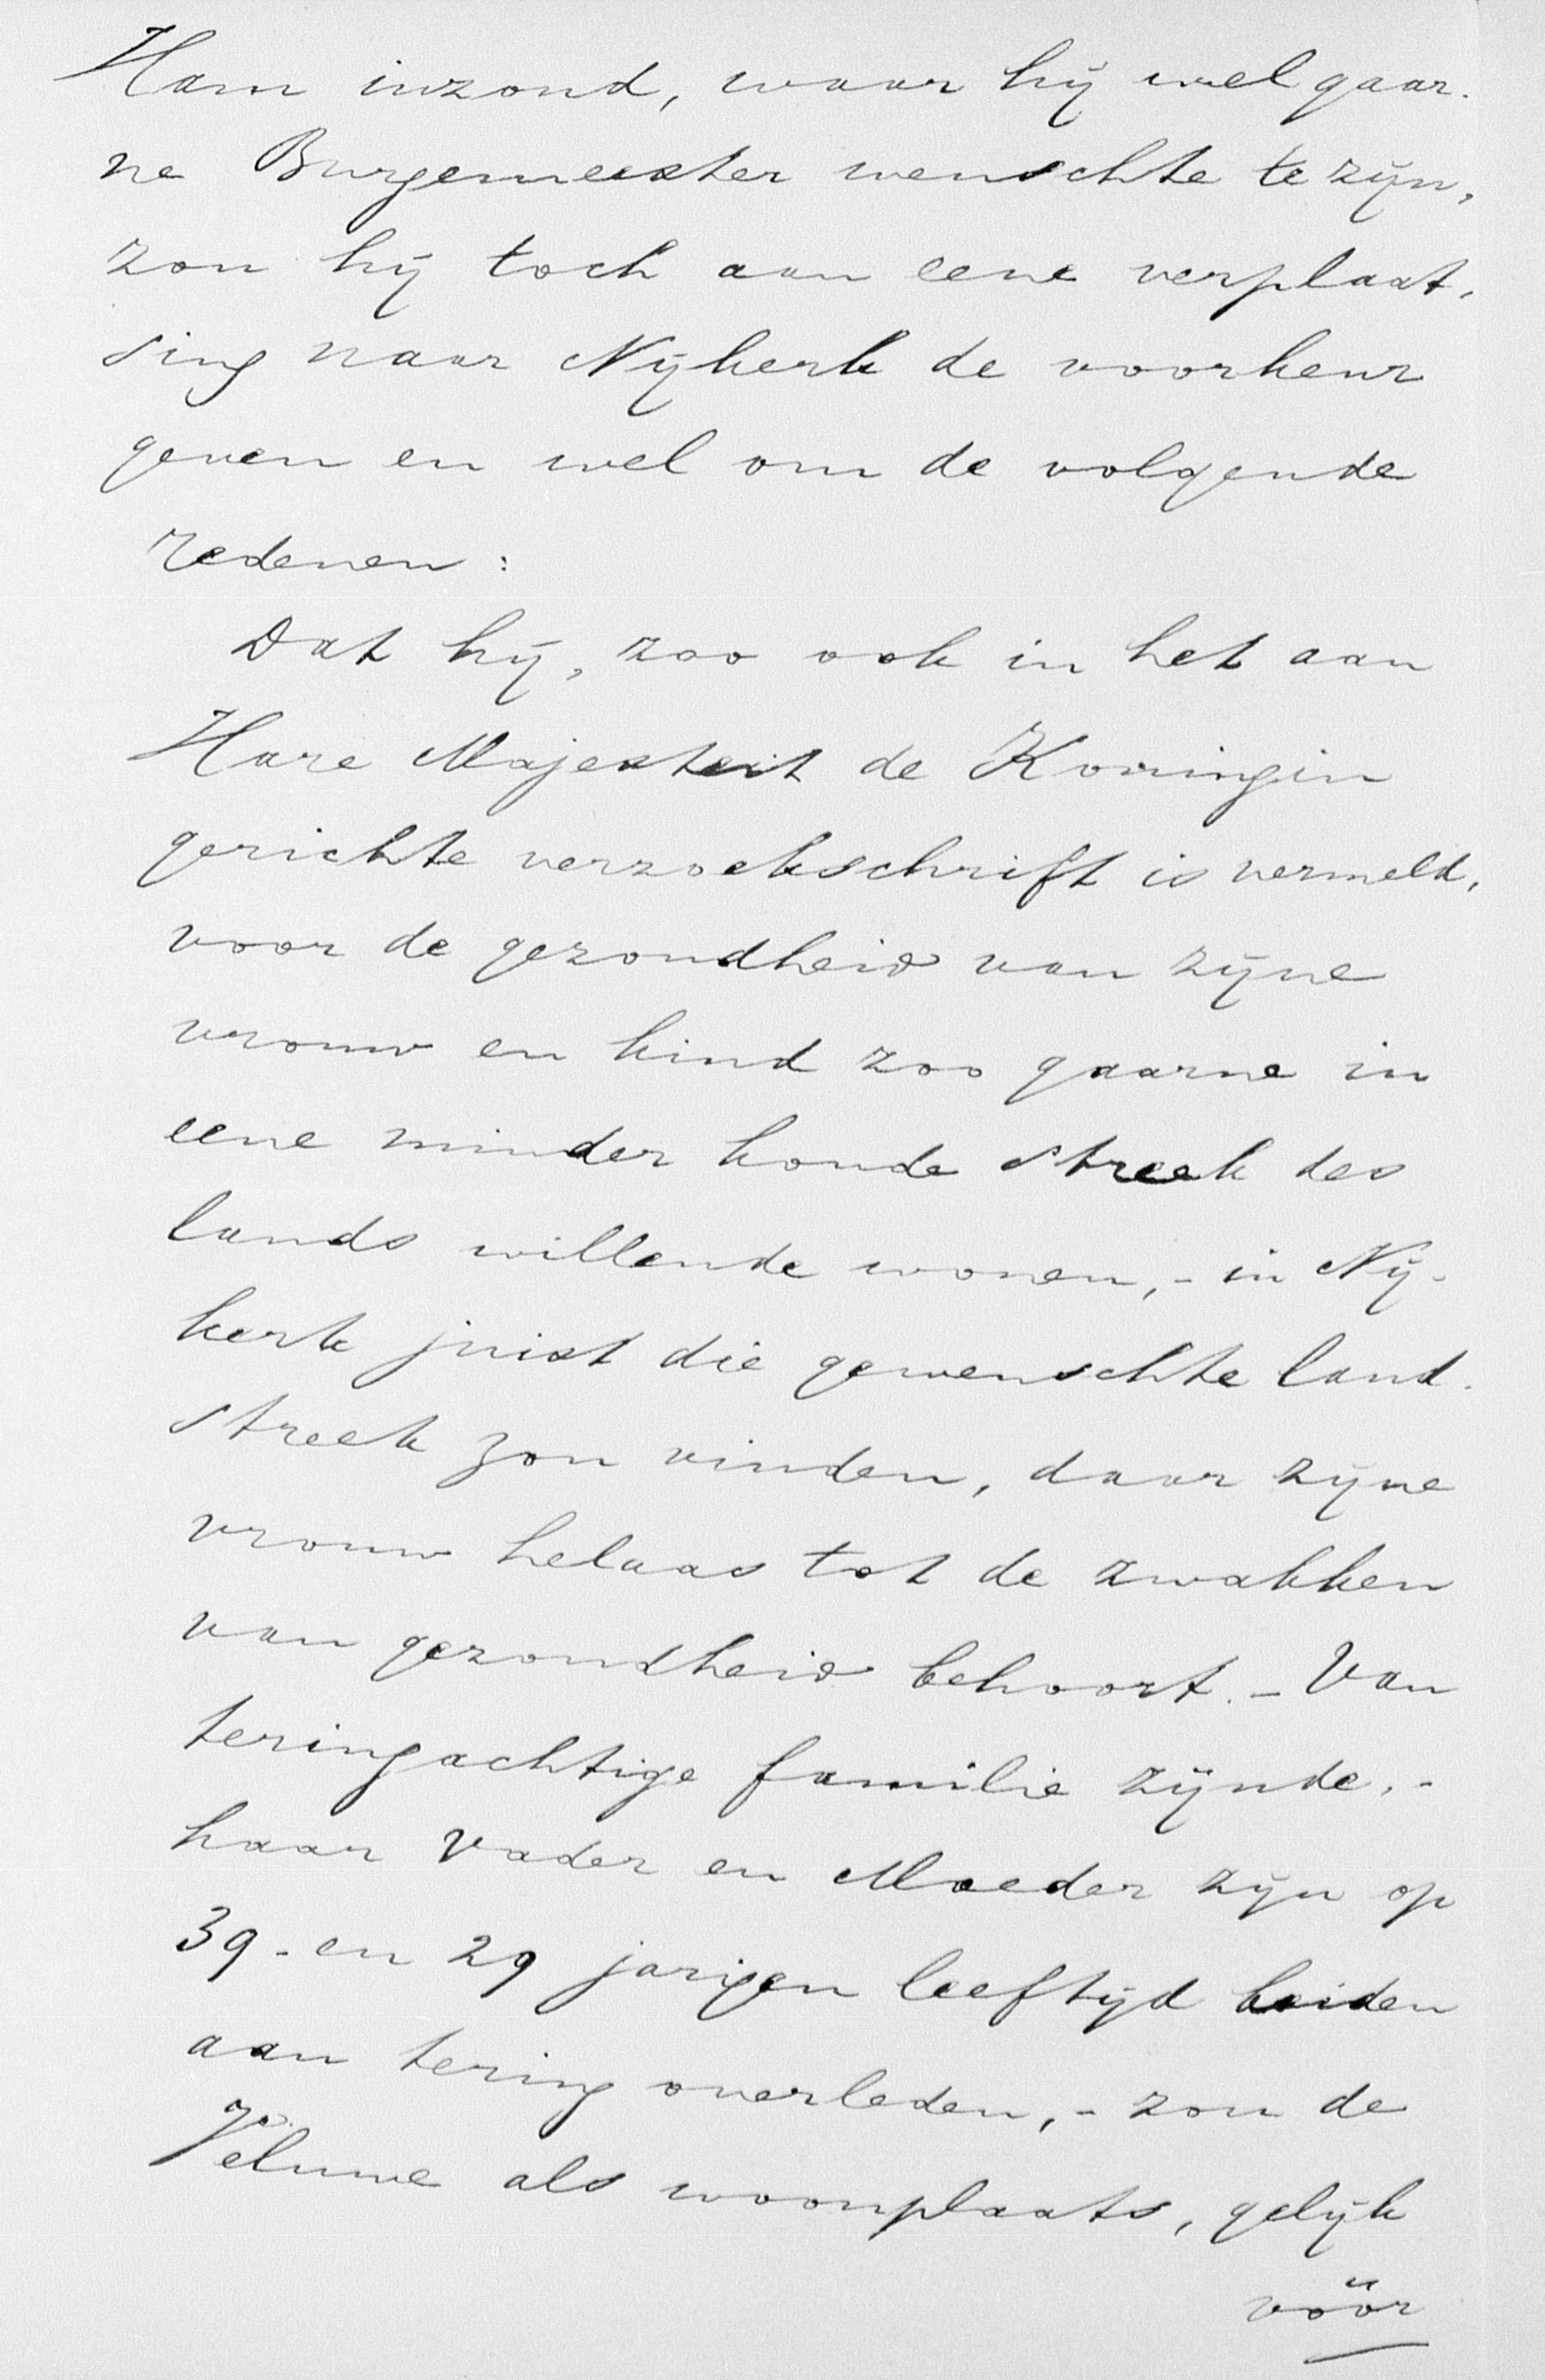 Ham inzond, waar hij wel gaar-
ne Burgemeester wenschte te zijn,
zou hij toch aan eene verplaat-
sing naar Nijkerk de voorkeur
geven en wel om de volgende
redenen:
Dat hij, zoo ook in het aan
Hare Majesteit de Koningin
gerichte verzoekschrift is vermeld,
voor de gezondheid van zijne
vrouw en kind zoo gaarne in
eene minder koude streek des
lands willende wonen,- in Nij-
kerk juist die gewenschte land-
streek zou vinden, daar zijne
vrouw helaas tot de zwakken
van gezondheid behoort.- Van
teringachtige familie zijnde,-
haar Vader en Moeder zijn op
39- en 29 jarigen leeftijd beiden
aan tering overleden,- zou de
Veluwe als woonplaats, gelijk
vóór